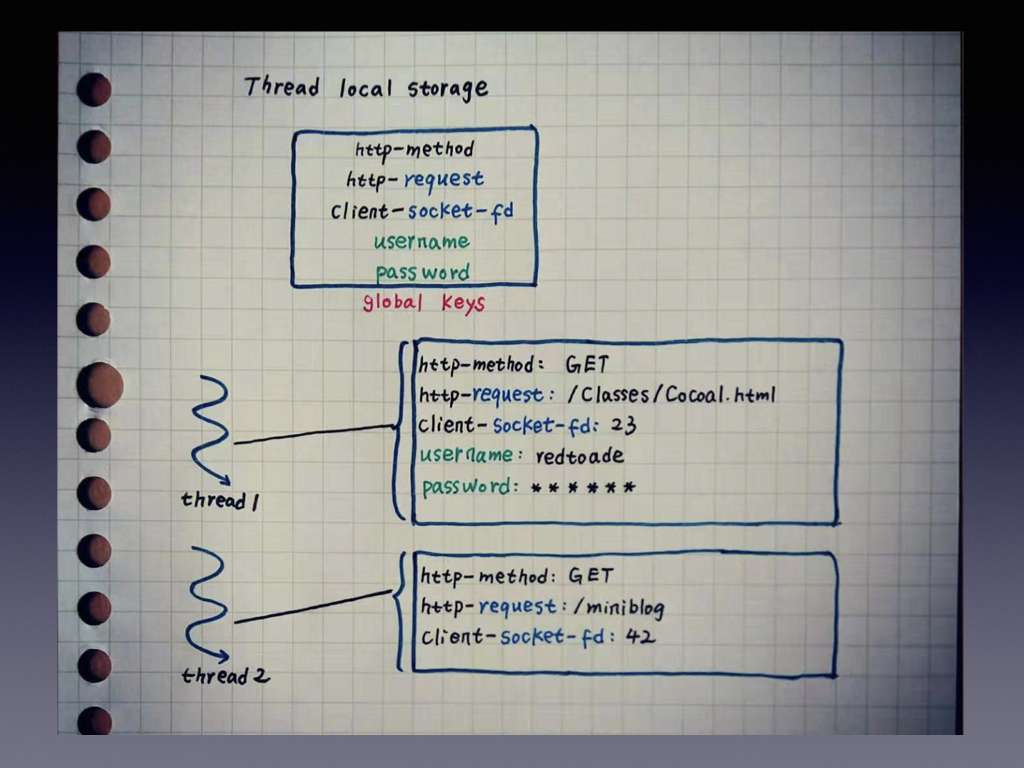 Thread local storage
http-method
http-request
client-socket-fd
username
password
global keys
http-method: GET
http-request: /Classes/Cocoal.html
client-socket-fd: 23
username: redtoade
password: ******
thread 1
http-method: GET
http-request: /miniblog
client-socket-fd: 42
thread 2